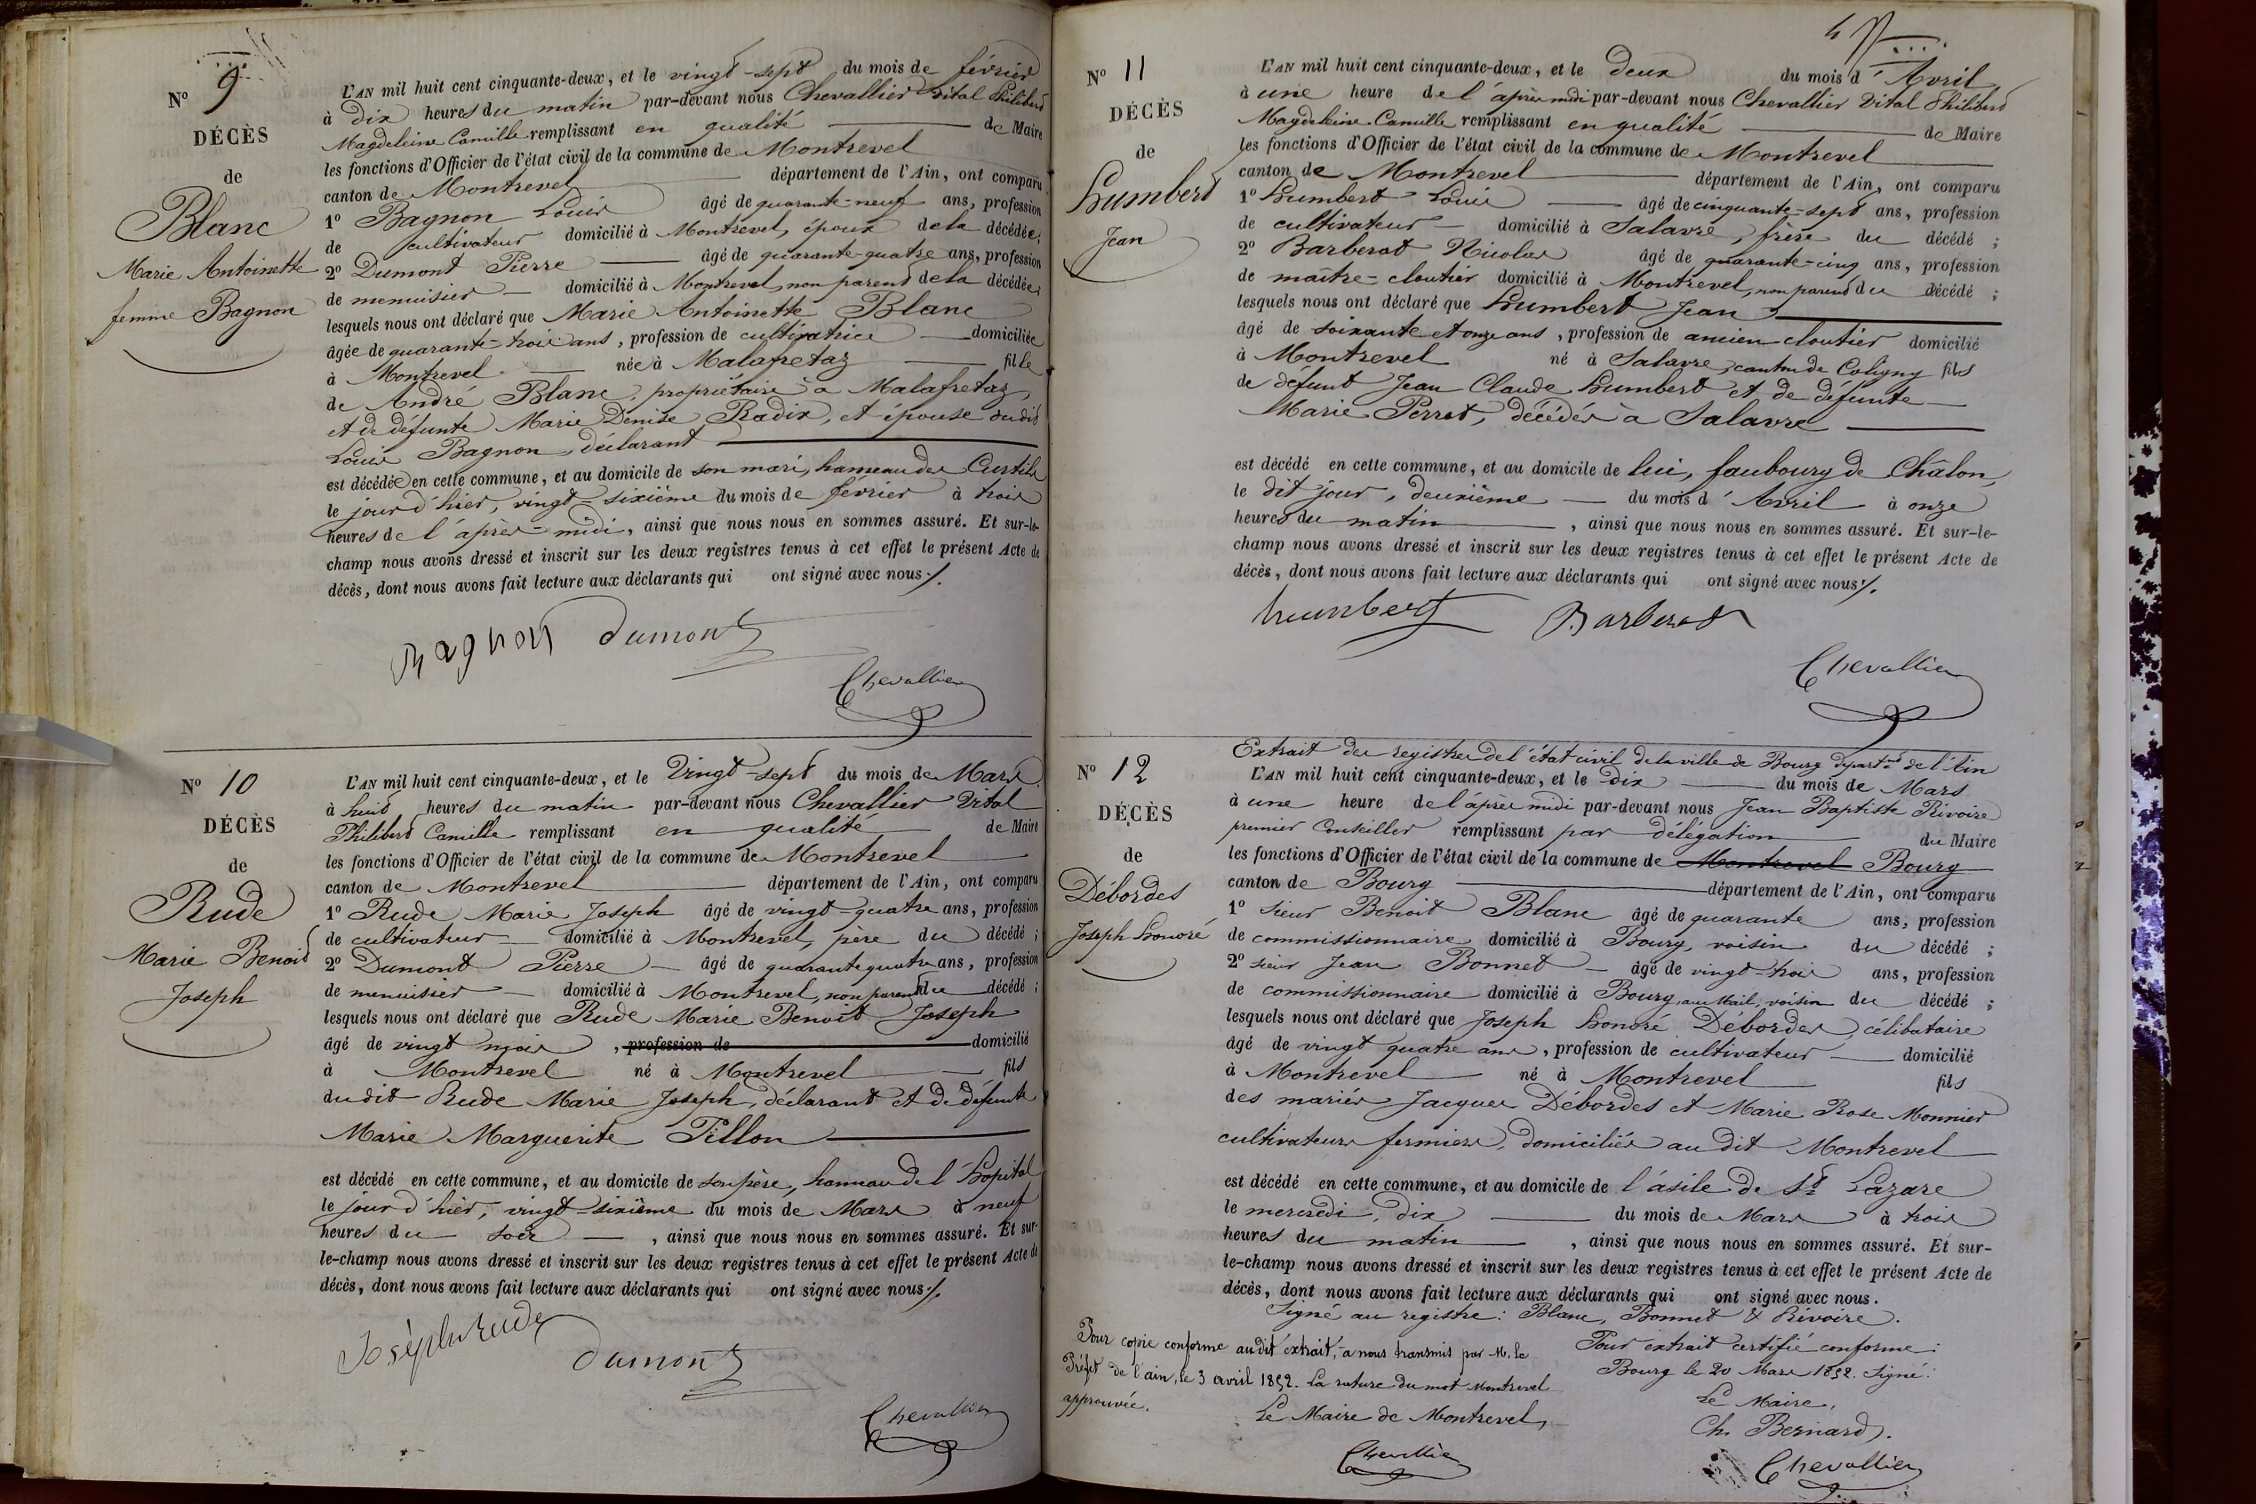 N° 9
DÉCÈS
de
Blanc
Marie Antoinette
femme Bagnon
L'AN mil huit cent cinquante-deux, et le vingt-sept du mois de février
à dix heures du matin par-devant nous Chevallier Vital Philibert
Magdeleine Camille remplissant en qualité de Maire
les fonctions d'Officier de l'état civil de la commune de Montrevel
canton de Montrevel département de l'Ain, ont comparu
1° Bagnon Louis âgé de quarante-neuf ans, profession
de cultivateur domicilié à Montrevel, époux de la décédée;
2° Dumont Pierre âgé de quarante-quatre ans, profession
de menuisier domicilié à Montrevel, non parent de la décédée;
lesquels nous ont déclaré que Marie Antoinette Blanc
âgée de quarante-trois ans, profession de cultivatrice domiciliée
à Montrevel née à Malafretaz fille
de André Blanc, propriétaire à Malafretaz,
et de défunte Marie Denise Radix, et épouse du dit
Louis Bagnon, déclarant
est décédée en cette commune, et au domicile de son mari, hameau des Curtils
le jour d'hier, vingt-sixième du mois de février à trois
heures de l'après-midi, ainsi que nous nous en sommes assuré. Et sur-le-
champ nous avons dressé et inscrit sur les deux registres tenus à cet effet le présent Acte de
décès, dont nous avons fait lecture aux déclarants qui ont signé avec nous ./.
Bagnon Dumont
Chevallier
N° 10
DÉCÈS
de
Rude
Marie Benoit
Joseph
L'AN mil huit cent cinquante-deux, et le Vingt-sept du mois de Mars
à huit heures du matin par-devant nous Chevallier Vital
Philibert Camille remplissant en qualité de Maire
les fonctions d'Officier de l'état civil de la commune de Montrevel
canton de Montrevel département de l'Ain, ont comparu
1° Rude Marie Joseph âgé de vingt-quatre ans, profession
de cultivateur domicilié à Montrevel, père du décédé;
2° Dumont Pierre âgé de quarante quatre ans, profession
de menuisier domicilié à Montrevel, non parent du décédé;
lesquels nous ont déclaré que Rude Marie Benoit Joseph
âgé de vingt mois, profession de domicilié
à Montrevel né à Montrevel fils
du dit Rude Marie Joseph, déclarant et de défunte
Marie Marguerite Pillon
est décédé en cette commune, et au domicile de son père, hameau de l'hopital
le jour d'hier, vingt-sixième du mois de Mars à neuf
heures du soir, ainsi que nous nous en sommes assuré. Et sur-
le-champ nous avons dressé et inscrit sur les deux registres tenus à cet effet le présent Acte de
décès, dont nous avons fait lecture aux déclarants qui ont signé avec nous ./.
Joséph Rude
Dumont
Chevallier
N° 11
DÉCÈS
de
Humbert
Jean
L'AN mil huit cent cinquante-deux, et le deux du mois d'Avril
à une heure de l'après midi par-devant nous Chevallier Vital Philibert
Magdeleine Camille remplissant en qualité de Maire
les fonctions d'Officier de l'état civil de la commune de Montrevel
canton de Montrevel département de l'Ain, ont comparu
1° Humbert Louis âgé de cinquante-sept ans, profession
de cultivateur domicilié à Salavre, frère du décédé;
2° Barberot Nicolas âgé de quarante-cinq ans, profession
de maître-cloutier domicilié à Montrevel, non parent du décédé;
lesquels nous ont déclaré que Humbert Jean
âgé de soixante et onze ans, profession de ancien cloutier domicilié
à Montrevel né à Salavre, canton de Coligny fils
de défunt Jean Claude Humbert et de défunte
Marie Perret, décédés à Salavre
est décédé en cette commune, et au domicile de lui, faubourg de Châlon,
le dit jour, deuxième du mois d'Avril à onze
heures du matin, ainsi que nous nous en sommes assuré. Et sur-le-
champ nous avons dressé et inscrit sur les deux registres tenus à cet effet le présent Acte de
décès, dont nous avons fait lecture aux déclarants qui ont signé avec nous ./.
humbert Barberot
Chevallier
N° 12
DÉCÈS
de
Débordes
Joseph honoré
Extrait des registres de l'état civil de la ville de Bourg départmt de l'Ain
L'AN mil huit cent cinquante-deux, et le dix du mois de Mars
à une heure de l'après midi par-devant nous Jean Baptiste Révoire
premier Conseiller remplissant par délégation du Maire
les fonctions d'Officier de l'état civil de la commune de Montrevel Bourg
canton de Bourg département de l'Ain, ont comparu
1° sieur Benoit Blanc âgé de quarante ans, profession
de commissionnaire domicilié à Bourg, voisin du décédé;
2° sieur Jean Bonnet âgé de vingt-trois ans, profession
de commissionnaire domicilié à Bourg, au Mail, voisin du décédé;
lesquels nous ont déclaré que Joseph honoré Débordes, célibataire
âgé de vingt quatre ans, profession de cultivateur domicilié
à Montrevel né à Montrevel fils
des mariés Jacques Débordes et Marie Rose Monnier
cultivateurs fermiers, domiciliés au dit Montrevel
est décédé en cette commune, et au domicile de l'asile de St Lazare
le mercredi, dix du mois de Mars à trois
heures du matin, ainsi que nous nous en sommes assuré. Et sur-
le-champ nous avons dressé et inscrit sur les deux registres tenus à cet effet le présent Acte de
décès, dont nous avons fait lecture aux déclarants qui ont signé avec nous.
Signé au registre: Blanc, Bonnet & Révoire.
Pour copie conforme audit extrait, a nous transmis par M. le
Préfet de l'ain, le 3 avril 1852. La rature du mot Montrevel
approuvée.
Le Maire de Montrevel,
Chevallier
Pour extrait certifié conforme:
Bourg le 20 Mars 1852. Signé:
Le Maire,
Ch. Bernard.
Chevallier